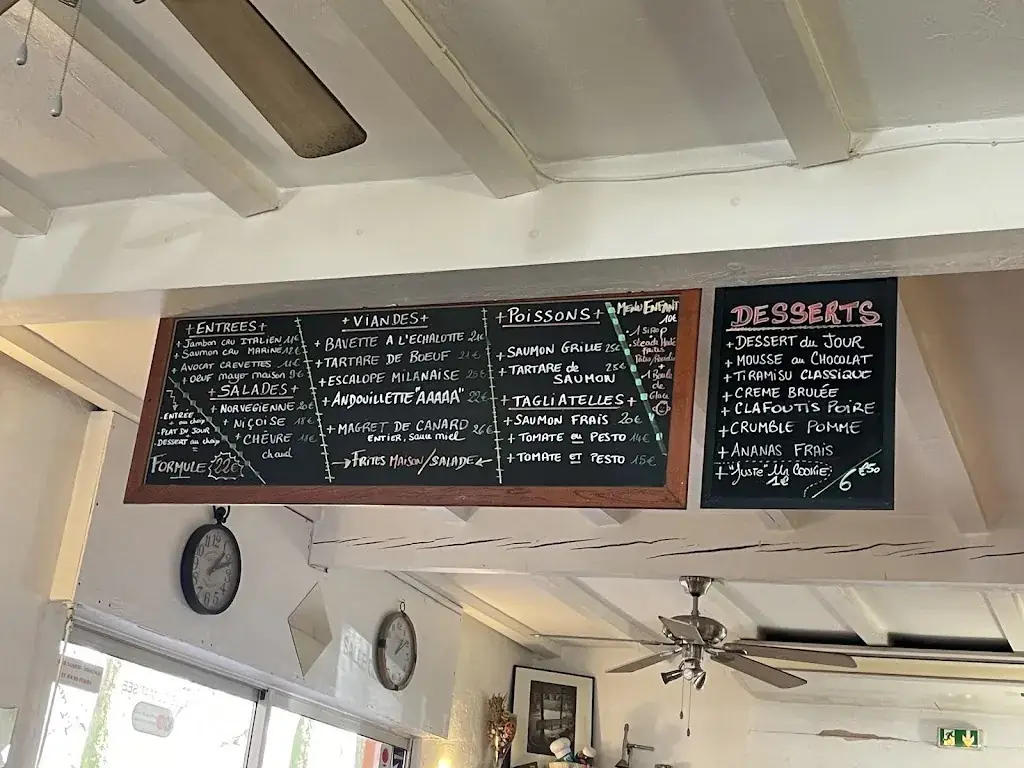 +ENTREES+
+ Jambon CRU ITALIEN 11€
+ Saumon CRU MARINE 12€
+ AVOCAT CREVETTES 11€
+ Oeuf mayo maison 9€
+SALADES+
+ NORVEGIENNE 20€
+ NIÇOISE 18€
+ CHÈVRE 18€
chaud
-ENTRÉE
au choix
-PLAT DU JOUR
-DESSERT au choix
FORMULE 22€
+VIANDES+
+ BAVETTE A L'ECHALOTTE 24€
+ TARTARE DE BOEUF 21€
+ ESCALOPE MILANAISE 25€
+ ANDOUILLETTE "AAAAA" 22€
+ MAGRET DE CANARD 26€
ENTIER, sauce miel
FRITES MAISON/SALADE
+POISSONS+
+ SAUMON GRILLE 25€
+ TARTARE de
SAUMON 25€
+TAGLIATELLES+
+ SAUMON FRAIS 20€
+ TOMATE ou PESTO 14€
+ TOMATE ET PESTO 15€
MENU ENFANT
10€
1 SIROP
+
Steack Haché
FRITES
+
1 Boule
de
Glace
DESSERTS
+ DESSERT du JOUR
+ MOUSSE au CHOCOLAT
+ TIRAMISU CLASSIQUE
+ CREME BRULÉE
+ CLAFOUTIS POIRE
+ CRUMBLE POMME
+ ANANAS FRAIS
+ "JUSTE" Un COOKIE:
1€
6€50